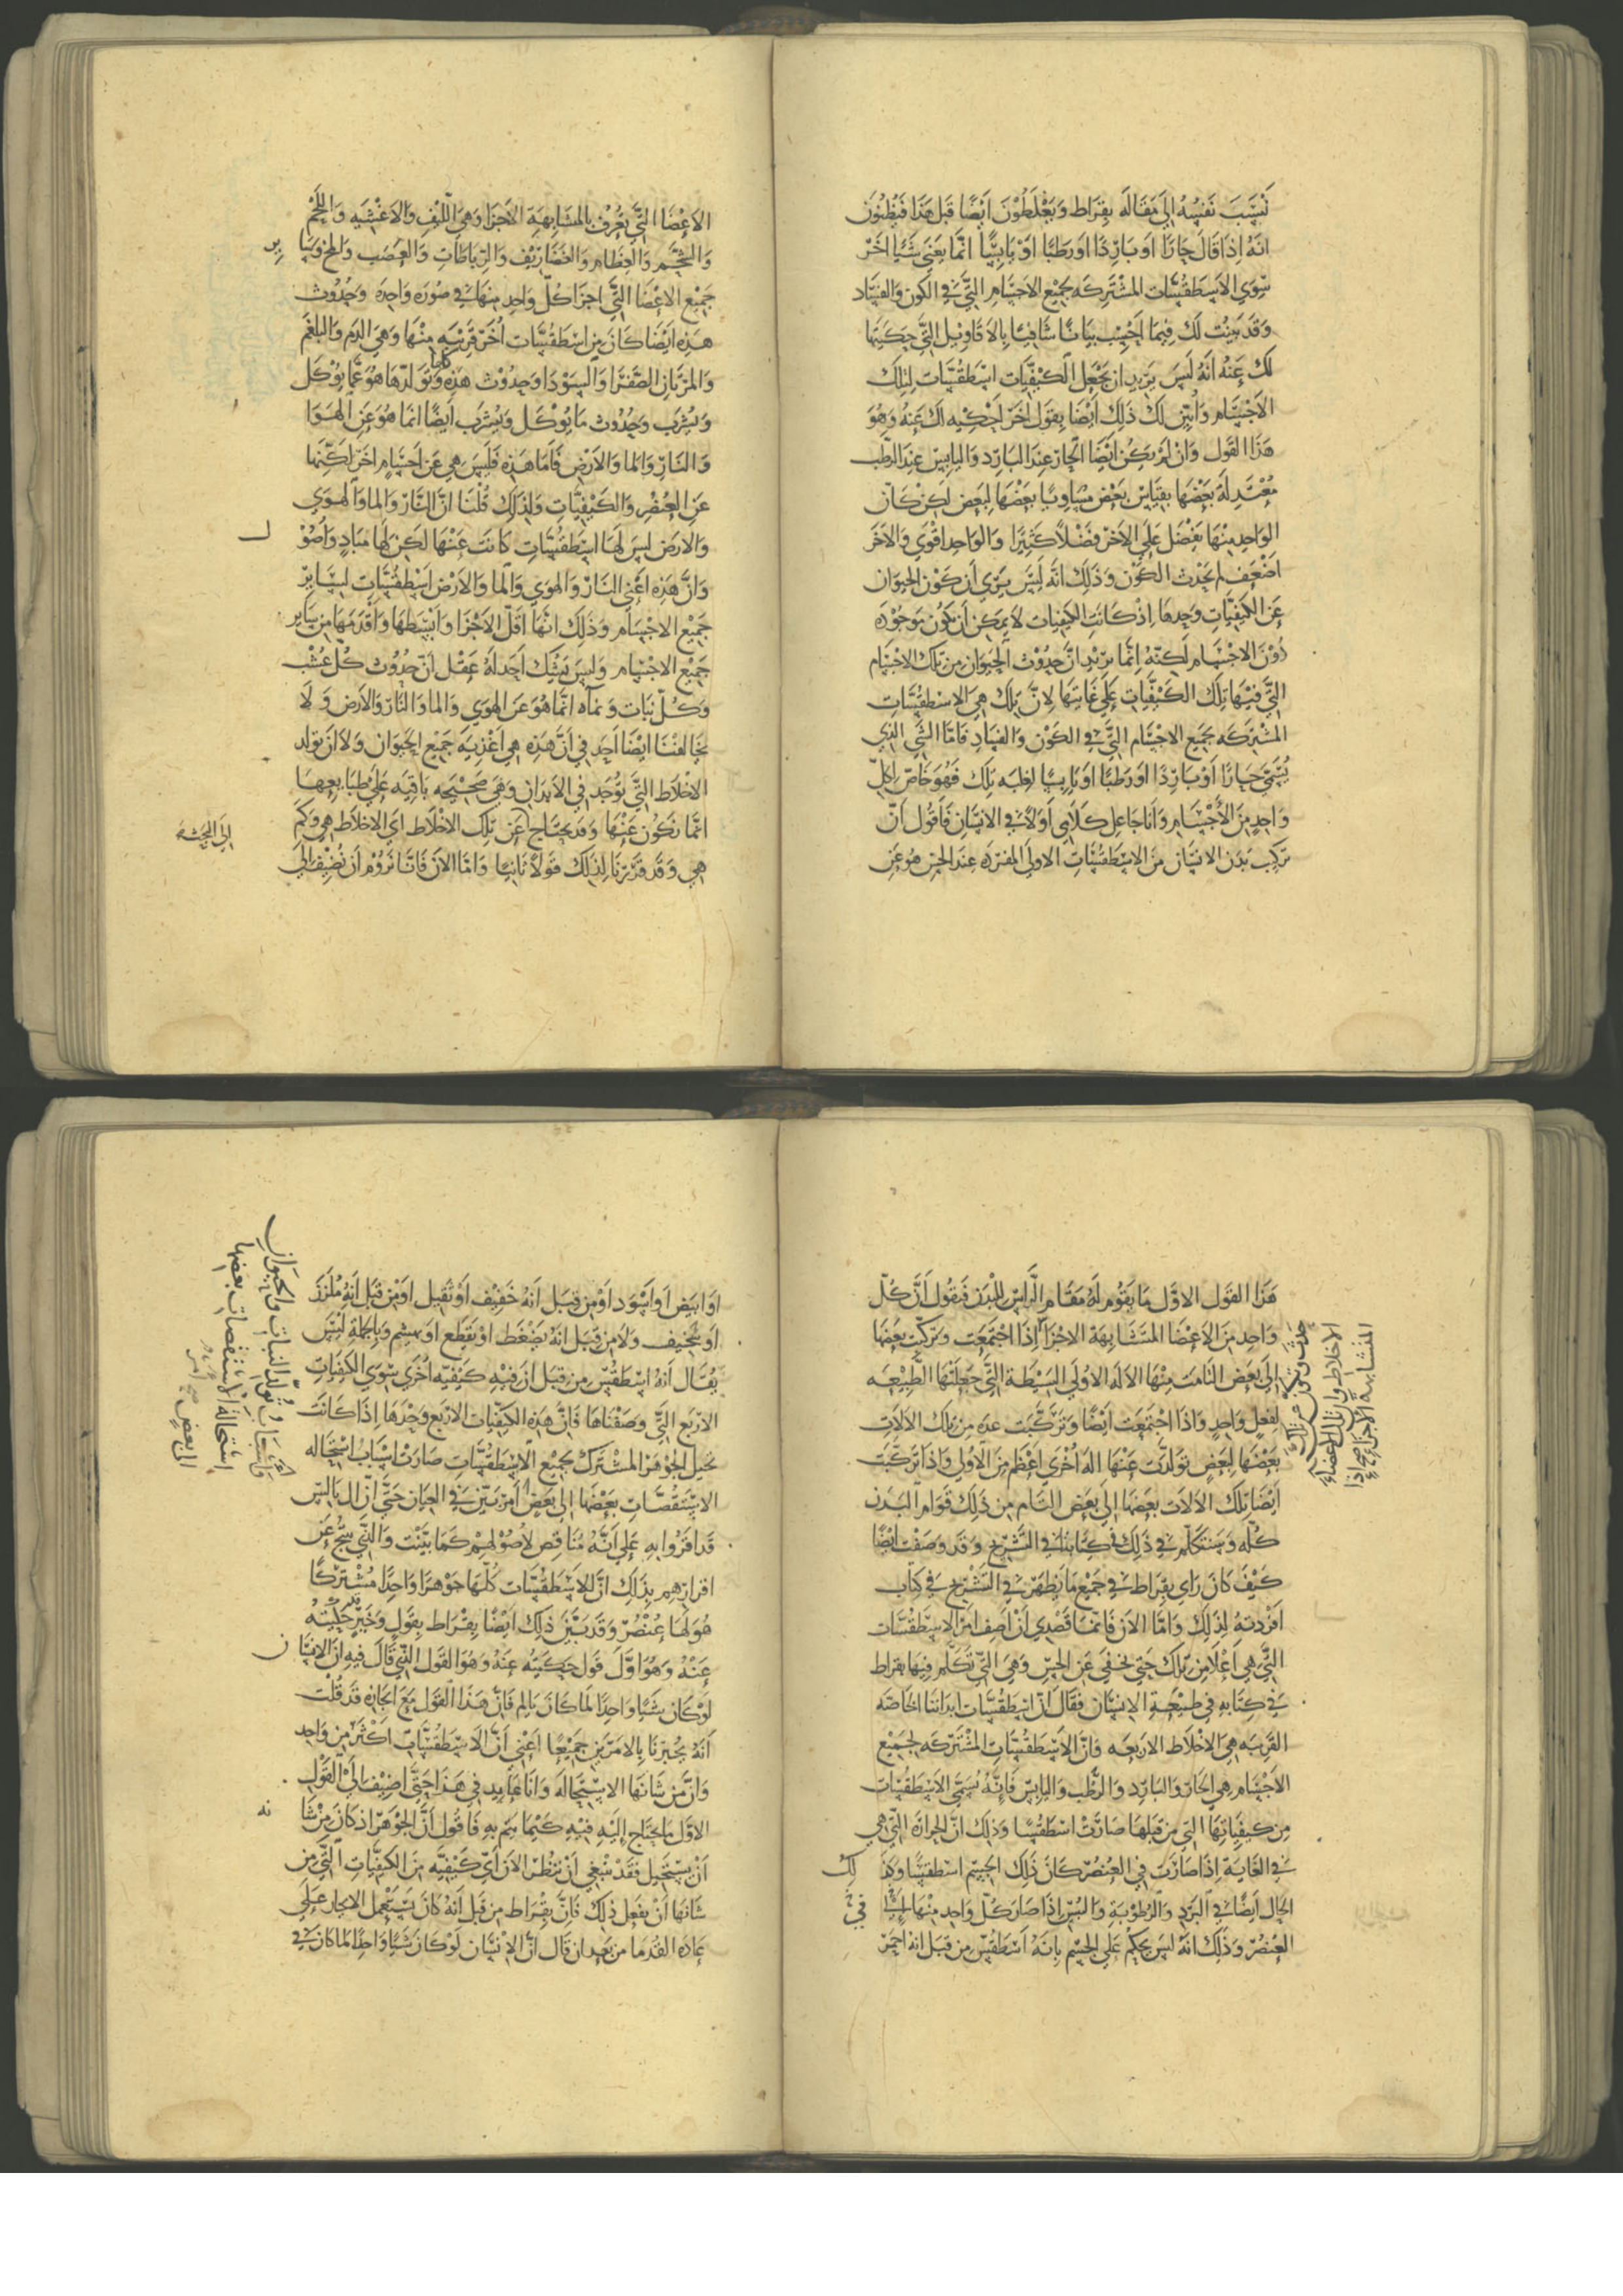 نسب نفسه الى مقالة بقراط ويغلطون ايضا قبل هذا فيظنون
انه اذا قال حارا او باردا او رطبا او يابسا انما يعني شيا اخر
سوى الاسطقسات المشتركه لجميع الاجسام التي في الكون والفساد
وقد بينت لك فيما احسب بيانا شافيا بالاقاويل التي حكيتها
لك عنه انه ليس يريد ان يجعل الكيفيات اسطقسات لتلك
الاجسام وابين لك ذلك ايضا بقول اخر احكيه لك عنه وهو
هذا القول وان لم يكن ايضا الحار عند البارد واليابس عند الرطب
معتدلة بعضها بقياس بعض مساويا بعضها لبعض لكن كان
الواحد منها يفضل على الاخر فضلا كثيرا والواحد اقوى والاخر
اضعف لم يحدث الكون وذلك انه ليس يرى ان كون الحيوان
عن الكيفيات وحدها اذ كانت الكيفيات لا يمكن ان تكون موجوده
دون الاجسام لكنه انما يريد ان حدوث الحيوان من تلك الاجسام
التي فيها تلك الكيفيات على غاتها لان تلك هي الاسطقسات
المشتركه لجميع الاجسام التي في الكون والفساد فاما الشي الذي
يسمى حارا او باردا او رطبا او يابسا لغلبه تلك فهو خاص لكل
واحد من الاجسام وانا جاعل كلامي اولا في الانسان فاقول ان
تركيب بدن الانسان من الاسطقسات الاولى المفرده عند الحس هو عن
الاعضا التي تعرف بالمتشابهة الاجزا وهي الليف والاغشيه واللحم
والشحم والعظام والغضاريف والرباطات والعصب والمخ وسا ير
جميع الاعضا التي اجزا كل واحد منها في صوره واحده وحدوث
هذه ايضا كان من اسطقسات اخر قريبه منها وهي الدم والبلغم
والمرتان الصفرا والسودا وحدوث هذه كلها وتولدها هو عما يوكل
ويشرب وحدوث ما يوكل ويشرب ايضا انما هو عن الهوا
والنار والما والارض فاما هذه فليس هي عن اجسام اخر لكنها
عن العنصر والكيفيات ولذلك قلنا ان النار والما والهوى
والارض ليس لها اسطقسات كانت عنها لكن لها مباد واصو ل
وان هذه اعني النار والهوى والما والارض اسطقسات لساير
جميع الاجسام وذلك انها اقل الاجزا وابسطها واقدمها من ساير
جميع الاجسام وليس يشك احد له عقل ان حدوث كل عشب
وكل نبات ونماه انما هو عن الهوى والما والنار والارض ولا
يخالفنا ايضا احد في ان هذه هي اغذية جميع الحيوان ولا ان تولد
الاخلاط التي توجد في الابدان وهي صحيحه باقيه على طبايعها
انما تكون عنها وقد يحتاج عن تلك الاخلاط اي الاخلاط هي وكم
الى البحث
هي وقد قررنا لذلك قولا ثانيا واما الان فانا نروم ان نضيف الى
هذا القول الاول ما يقوم له مقام الراس للبدن فيقول ان كل
واحد من الاعضا المتشابهة الاجزا اذا اجتمعت وتركبت بعضها
الى بعض التامت منها الاله الاولى البسيطة التي جعلتها الطبيعه
لفعل واحد واذا اجتمعت ايضا وتركبت عده من تلك الالات
بعضها لبعض تولدت عنها اله اخرى اعظم من الاولى واذا تركبت
ايضا تلك الالات بعضها الى بعض التام من ذلك قوام البدن
كله وسنتكلم في ذلك في كتابنا في التشريح وقد وصفت ايضا
كيف كان راي بقراط في جميع ما يظهر في التشريح في كتاب
افردته لذلك واما الان فانما قصدي ان اصف امر الاسطقسات
التي هي اعلا من تلك حتى تخفى عن الحس وهي التي تكلم فيها بقراط
في كتابه في طبيعة الانسان فقال ان اسطقسات ابداننا الخاصه
القريبه هي الاخلاط الاربعه فان الاسطقسات المشتركه لجميع
الاجسام هي الحار والبارد والرطب واليابس فانه يسمي الاسطقسات
من كيفياتها التي من قبلها صارت اسطقسا وذلك ان الحرارة التي هي
في الغاية اذا صارت في العنصر كان ذلك الجسم اسطقسا وكذ لك
الحال ايضا في البرد والرطوبة واليبس اذا صار كل واحد منها في
العنصر وذلك انه ليس يحكم على الجسم بانه اسطقس من قبل انه احمر
حدث وتركب من تلك
الاخلاط وان تلك الاعضاء
المتشابهة الاجزاء اذا
او ابيض او اسود او من قبل انه خفيف او ثقيل او من قبل انه ملزز
او سخيف ولا من قبل انه يضغط او يقطع او يهشم وبالجملة ليس
يقال انه اسطقس من قبل ان فيه كيفيه اخرى سوى الكيفيات
الاربع التي وصفناها فان هذه الكيفيات الاربع وحدها اذا كانت
تحيل الجوهر المشترك لجميع الاسطقسات صارت اسباب استحاله
الاستقصات بعضها الى بعض امر بين في العيان حتى ان ال باليس
قد اقروا به على انه مناقض لاصولهم كما بينت والذي ينتج عن
اقرارهم بذلك ان للاسطقسات كلها جوهرا واحدا مشتركا
هو لها عنصر وقد بين ذلك ايضا بقراط بقول وخبر حكيته
عنه وهو اول قول حكيته عنه وهو القول الذي قال فيه ان الانسا ن
لو كان شيا واحدا لما كان يالم فان هذا القول مع ايجازه قد قلت
انه يخبرنا بالامرين جميعا اعني ان الاسطقسات اكثر من واحد
وان من شانها الاستحالة وانا عايد في هذا حتى اضيف الى القول
الاول ما يحتاج اليه فيه كيما يتم به فاقول ان الجوهر اذ كان من شا نه
ان يستحيل فقد ينبغي ان ننظر الان اي كيفيه من الكيفيات التي من
شانها ان يفعل ذلك فان بقراط من قبل انه كان يستعمل الايجاز على
عاده القدما من بعد ان قال ان الانسان لو كان شيا واحدا لما كان في
تولد النبات والحيوان
استحالة الاستقصات بعضها
الى بعض